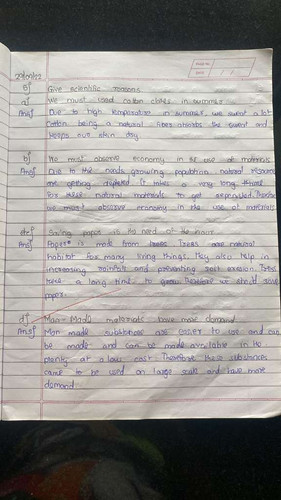 Page No.
Date / /
Q5] Give scientific reasons
a] We must used cotton clothes in summer
Ans] Due to high temperature in summer, we sweat a lot
Cotton being a natural fibes absorbs the sweat and
keeps our skin dry
b] We must observe economy in the use of materials
Ans] Due to the needs growing population natural resources
are getting depleted. It takes a very long
For these natural materials to get
we must observe economy in the use of materials.
Saving paper is the need of the hour
Ans] Paper is made from trees. Trees are natural
habitat for many living things. They also help in
increasing rainfall and preventing soil erosion. Trees
take a long time to grow. Therefore we should save
paper.
d] Man-Made materials have more demand
Ans] Man made substances are easier to use and can
be made and can be made available in the
plenty at a low cost. Therefore these substances
came to be used on large scale and have more
demand